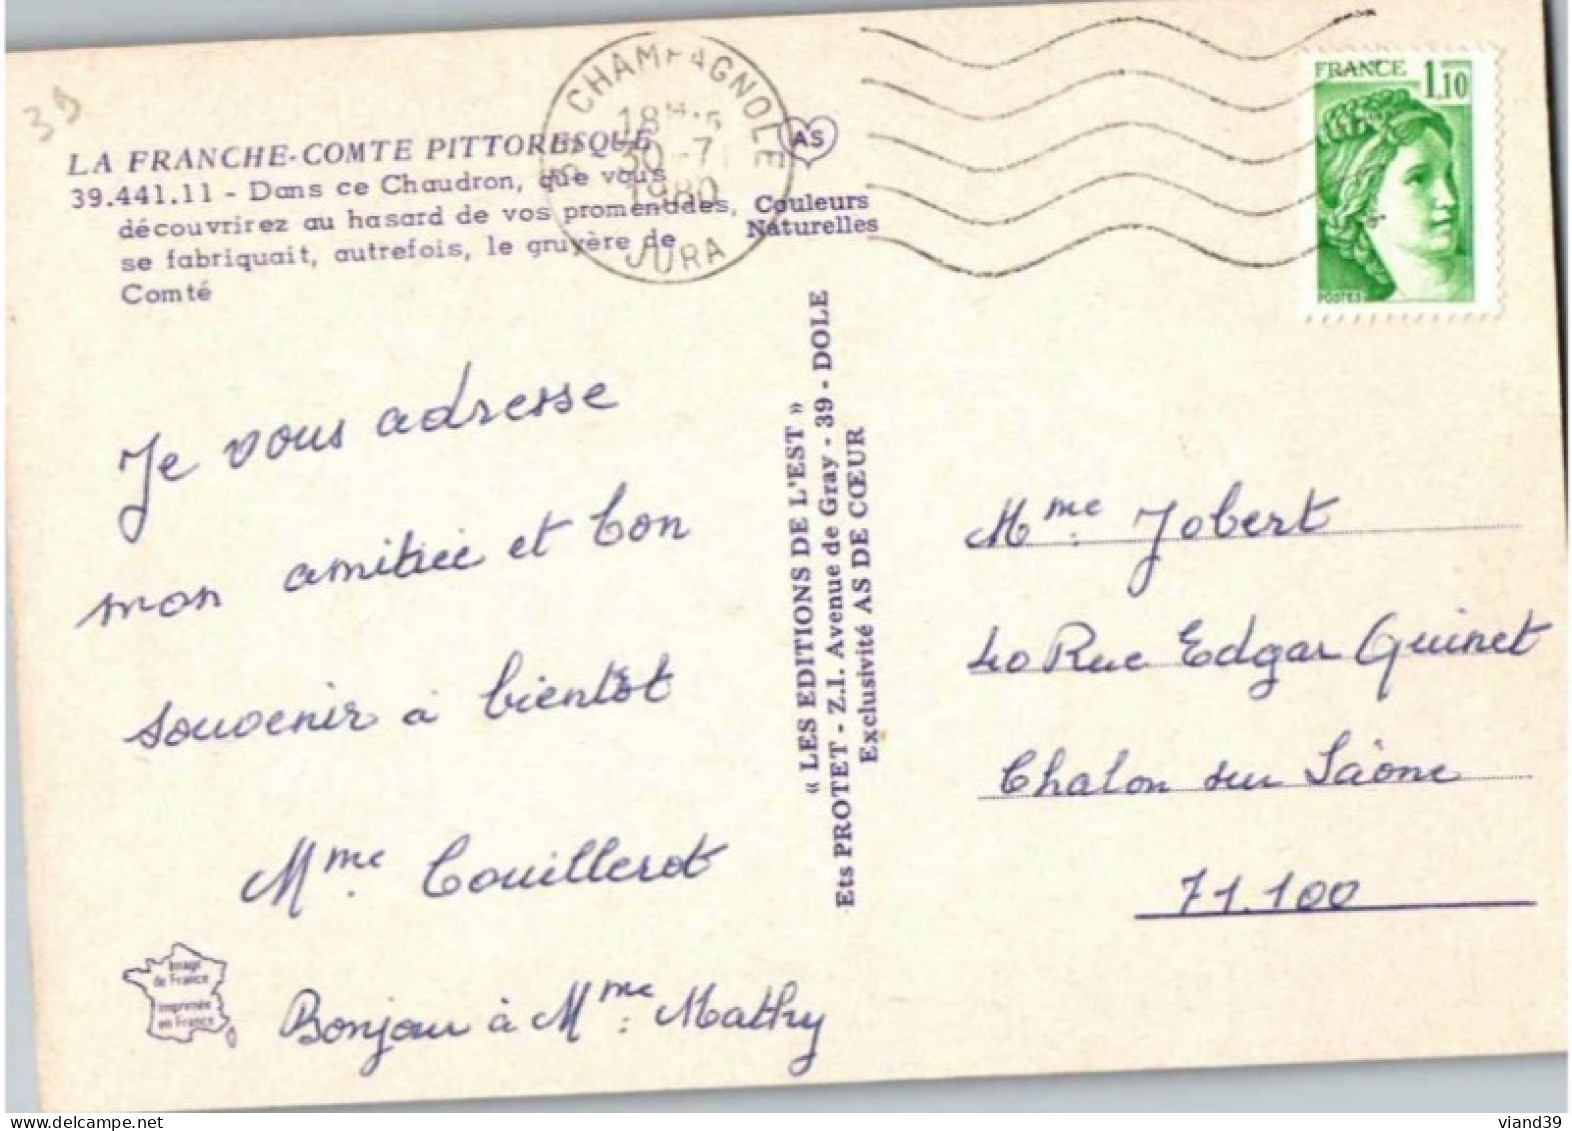 39
LA FRANCHE-COMTE PITTORESQUE
39.441.11 - Dans ce Chaudron, que vous
découvrirez au hasard de vos promenades,
se fabriquait, autrefois, le gruyère de
Comté
CHAMPAGNOLE
18H15
30-7
1980
JURA
AS
Couleurs
Naturelles
FRANCE 1,10
POSTES
Je vous adresse
mon amitiée et bon
souvenir à bientôt
Mme Couillerot
Bonjour à Mme Mathy
Image
de France
imprimée
en France
« LES EDITIONS DE L'EST »
Ets PROTET - Z.I. Avenue de Gray - 39 - DOLE
Exclusivité AS DE CŒUR
Mme Jobert
40 Rue Edgar Quinet
Chalon sur Saône
71.100
viand39